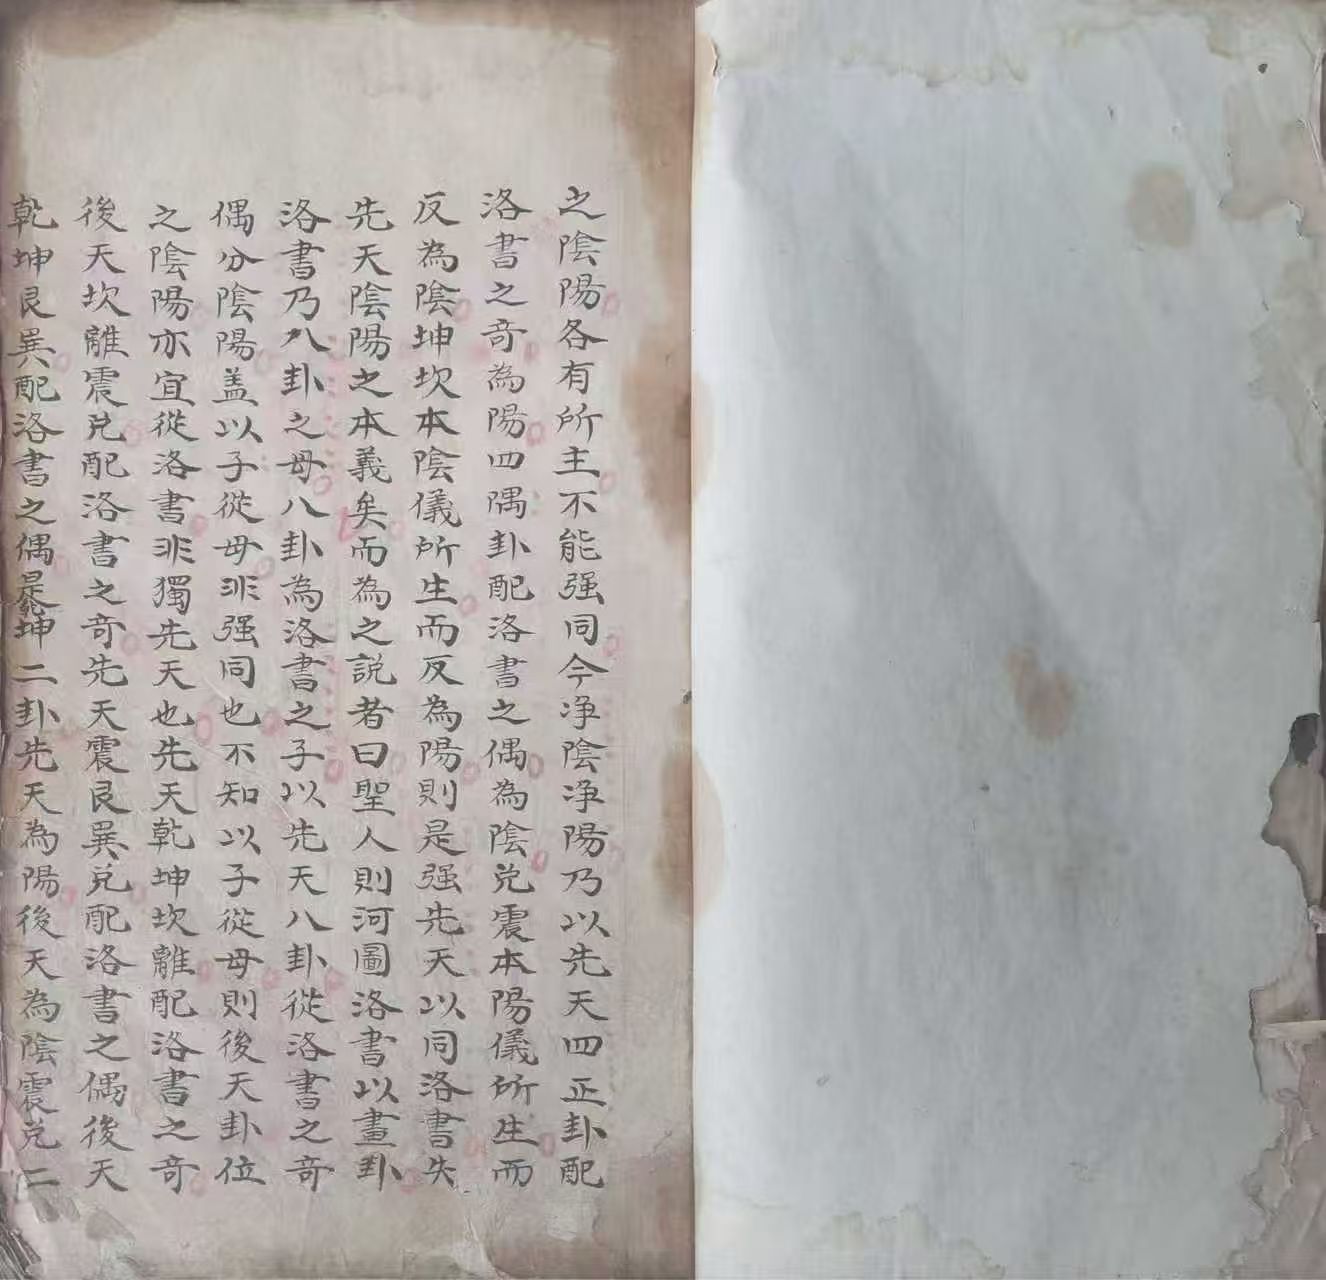 之陰陽各有所主不能强同今净陰净陽乃以先天四正卦配
洛書之奇為陽四隅卦配洛書之偶為陰兑震本陽儀所生而
反為陰坤坎本陰儀所生而反為陽則是强先天以同洛書失
先天陰陽之本義矣而為之説者曰聖人則河圖洛書以畫卦
洛書乃八卦之母八卦為洛書之子以先天八卦從洛書之奇
偶分陰陽盖以子從母非强同也不知以子從母則後天卦位
之陰陽亦宜從洛書非獨先天也先天乾坤坎離配洛書之奇
後天坎離震兑配洛書之奇先天震艮巽兑配洛書之偶後天
乾坤艮巽配洛書之偶是乾坤二卦先天為陽後天為陰震兑二